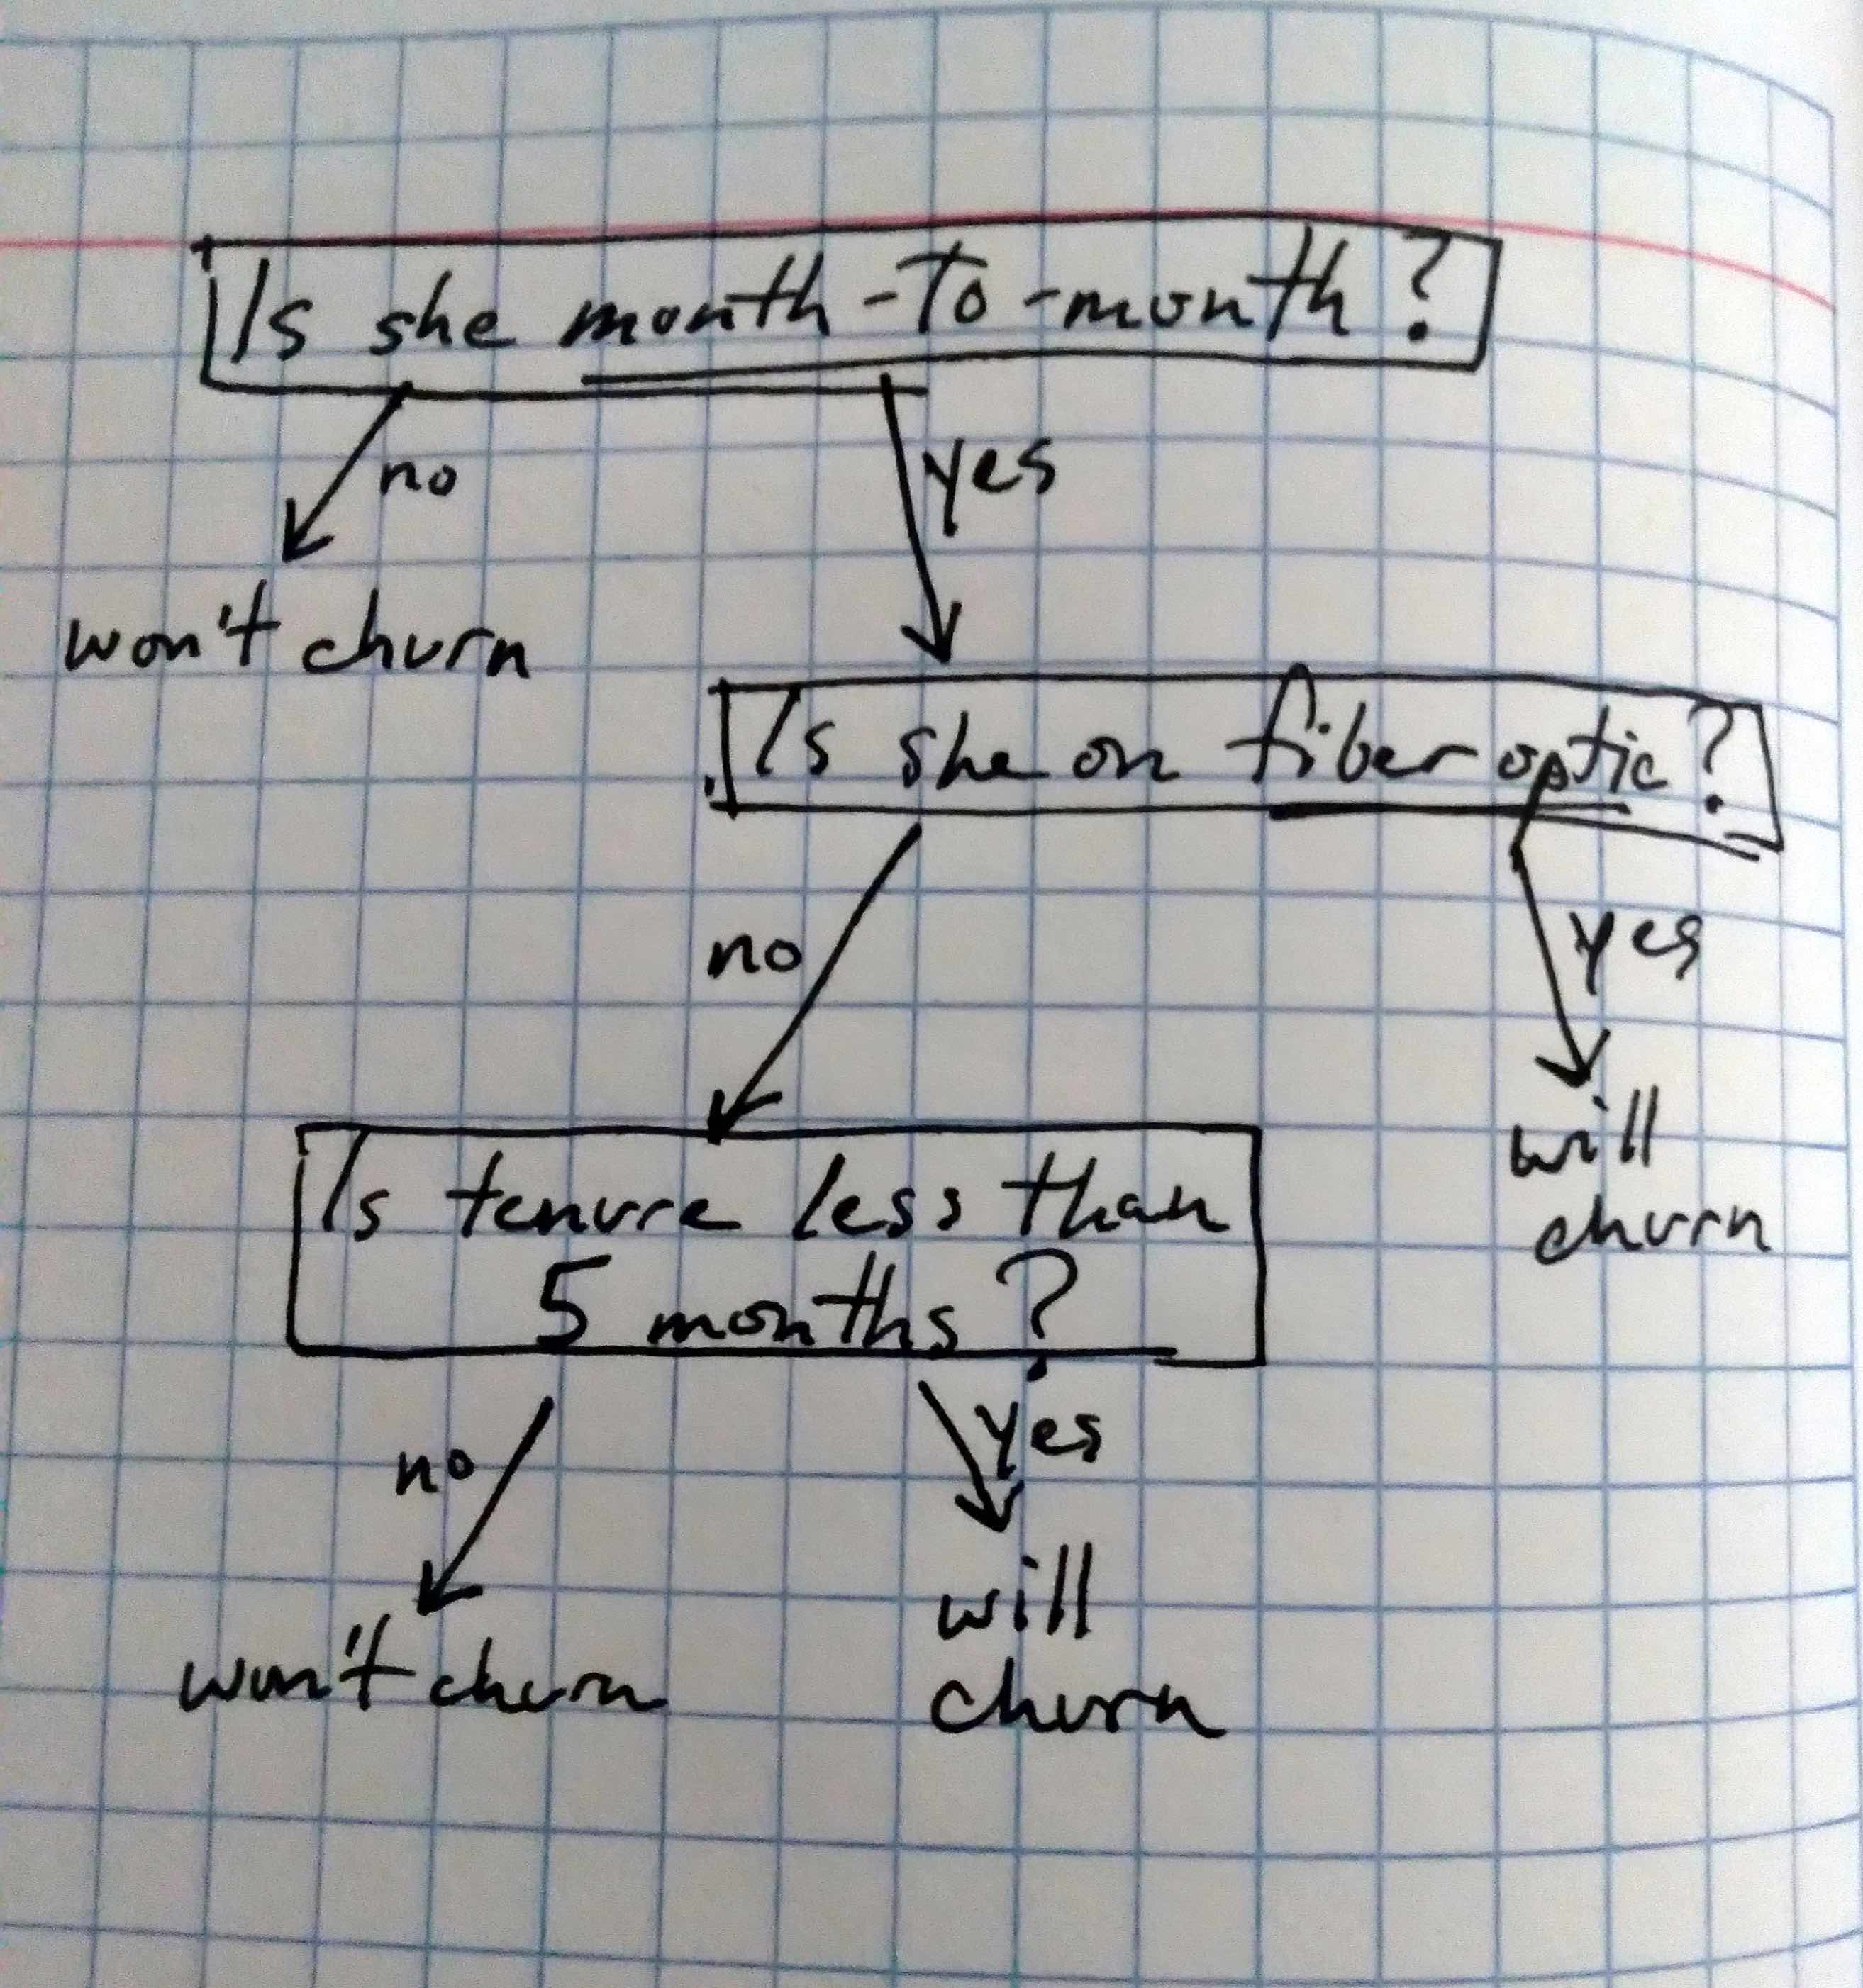 Is she month-to-month?
no
yes
won't churn
Is she on fiber optic?
no
yes
will
churn
Is tenure less than
5 months?
no
yes
won't churn
will
churn